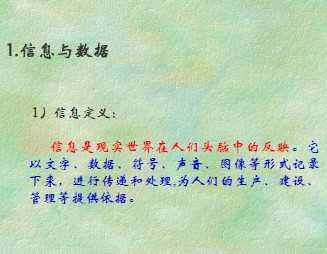 1.信息与数据
1）信息定义：
信息是现实世界在人们头脑中的反映。它
以文字、数据、符号、声音、图像等形式记录
下来，进行传递和处理,为人们的生产、建设、
管理等提供依据。